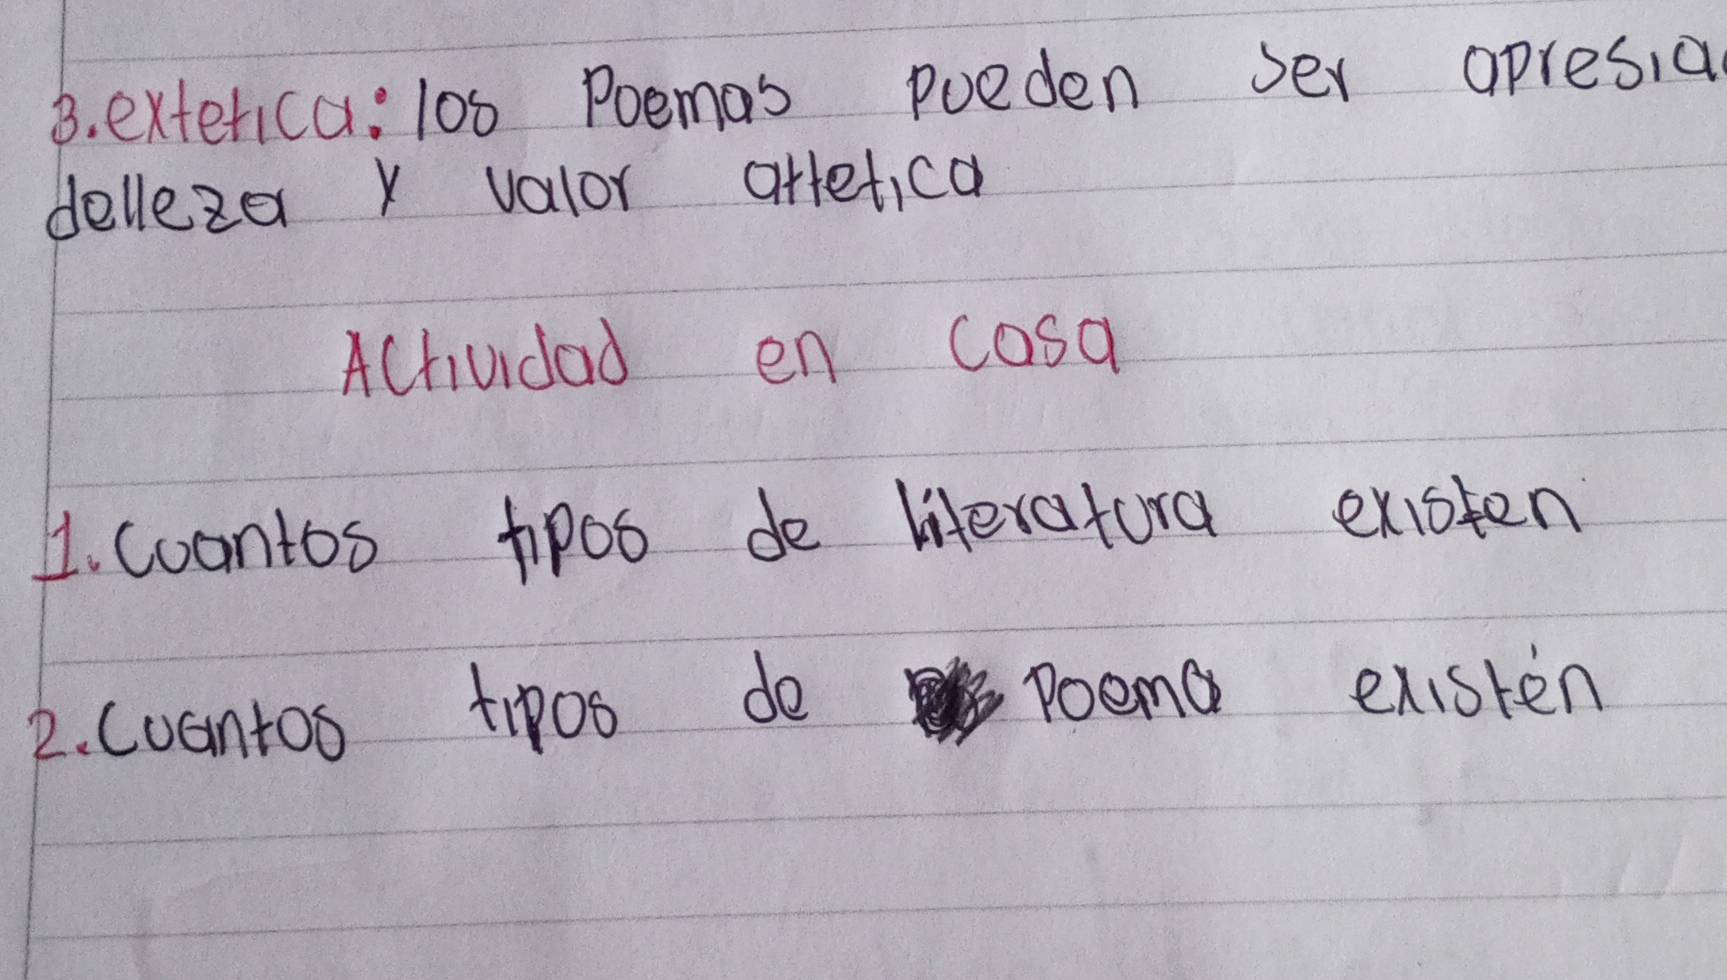 3.extetica: los Poemas pueden ser apresia
delleza y valor artetica
Actividad en casa
1. Cuantos tipos de literatura existen
2. Cuantos tipos de Poema existén